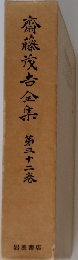 齋藤茂吉全集
第三十二卷
岩波書店